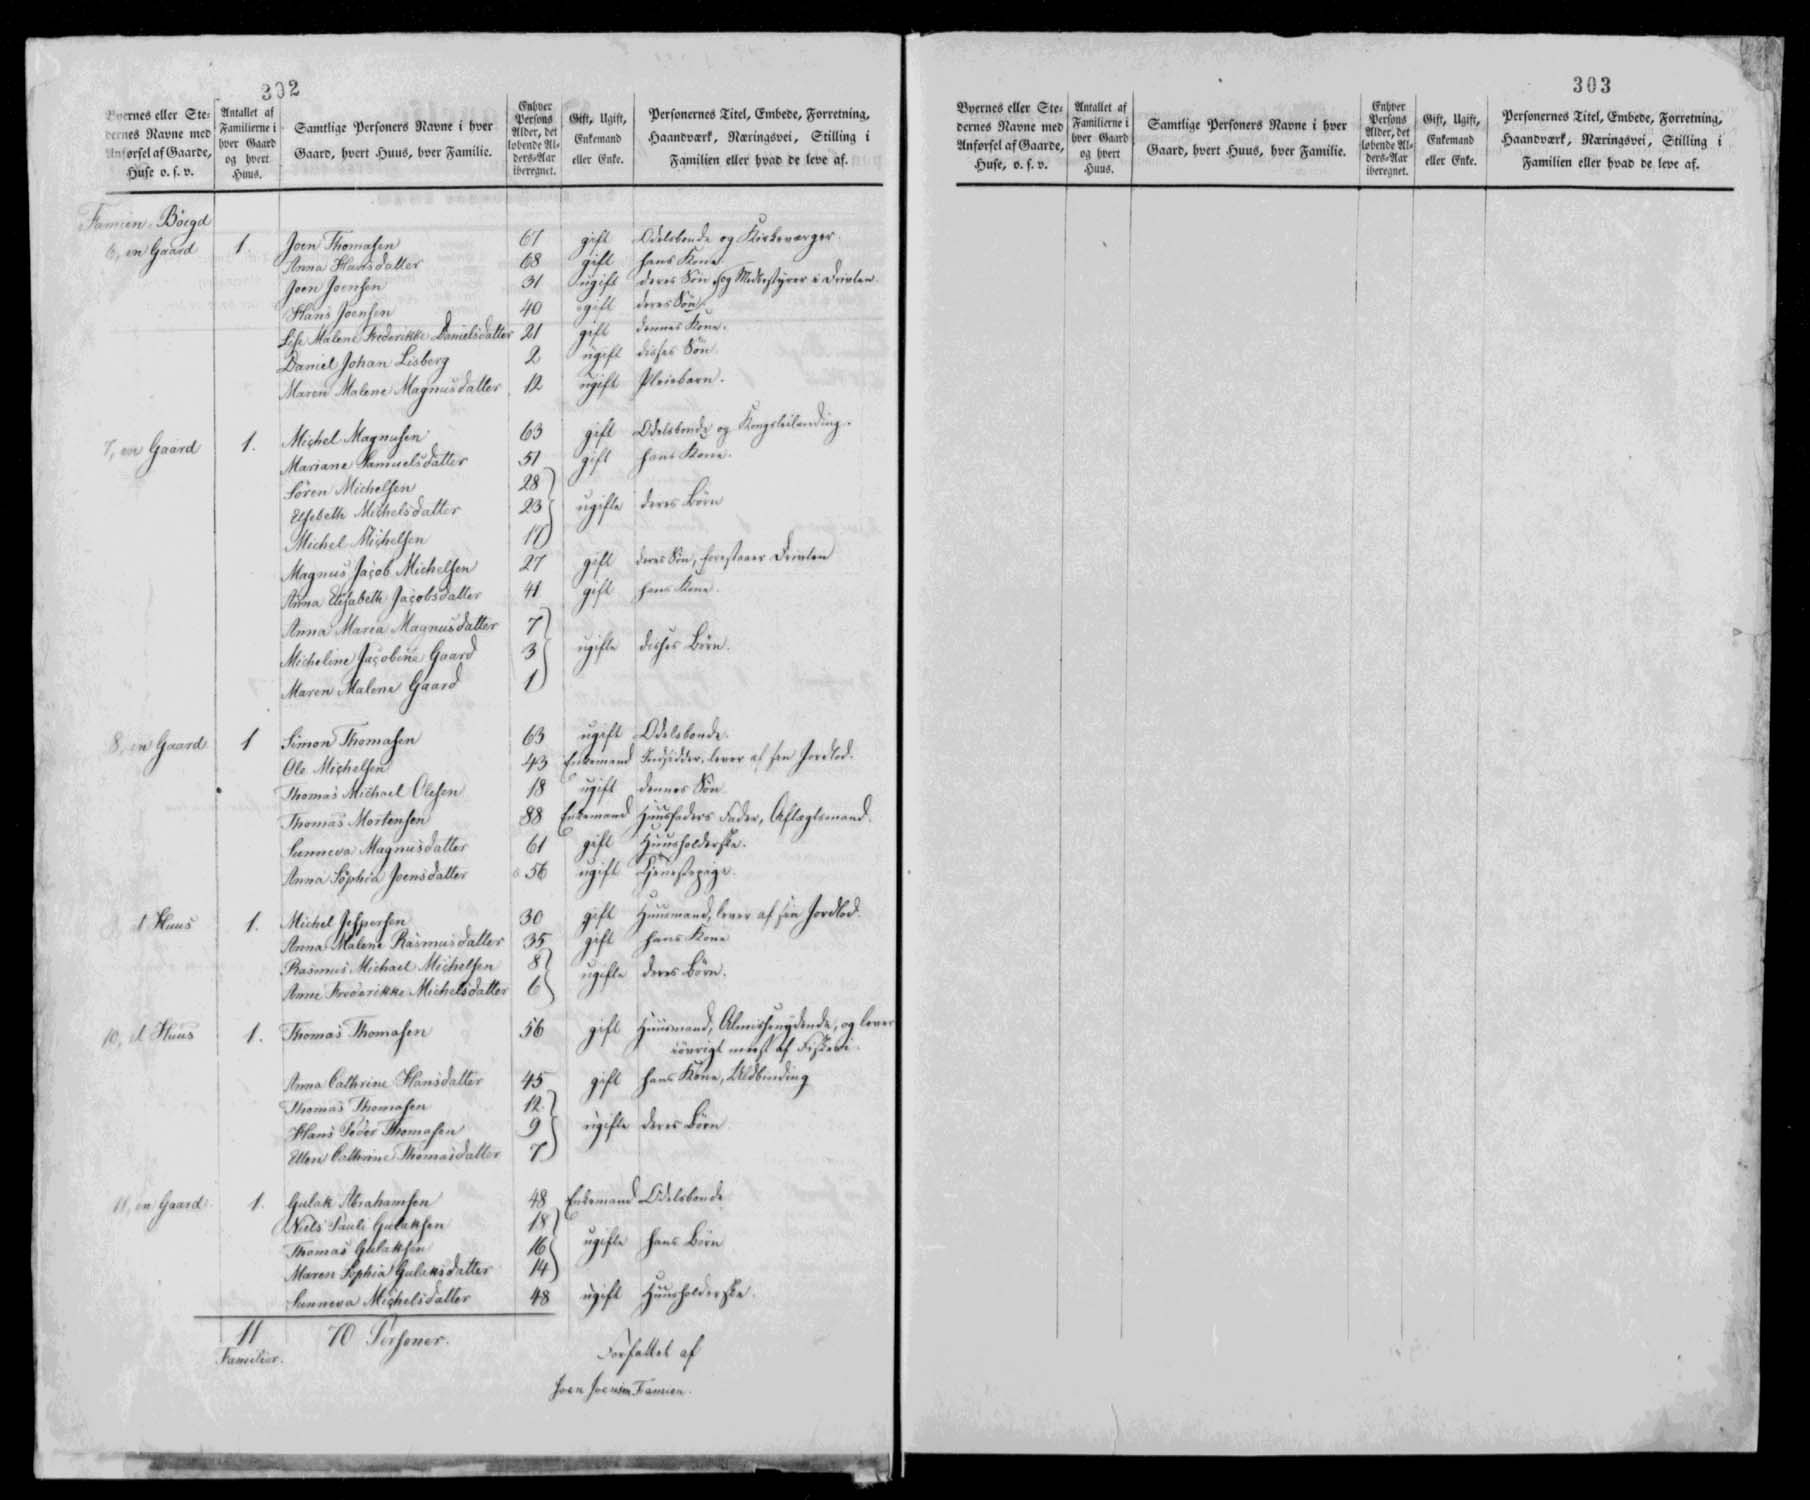 302
Byernes eller Ste- dernes Navne med Anførsel af Gaarde, Huse o. s. v.
Antallet af Familierne i hver Gaard og hvert Huus.
Samtlige Personers Navne i hver Gaard, hvert Huus, hver Familie.
Enhver Persons Alder, det løbende Al- ders-Aar iberegnet.
Gift, Ugift, Enkemand eller Enke.
Personernes Titel, Embede, Forretning, Haandværk, Næringsvei, Stilling i Familien eller hvad de leve af.
Famien, Böigd
6, en Gaard 1. Joen Thomasen 67 gift Odelsbonde og Kirkeværger.
Anna Hansdatter 68 gift hans Kone.
Joen Joensen 31 ugift deres Søn og Medbestyrer i Drivten.
Hans Joensen 40 gift deres Søn.
Malene Frederikke Danielsdatter 21 gift dennes Kone.
Daniel Johan Lisberg 2 ugift disses Søn.
Maren Malene Magnusdatter 12 ugift Pleiebarn.
7, en Gaard 1. Michel Magnusen 63 gift Odelsbonde og Kongsleilending.
Mariane Samuelsdatter 51 gift hans Kone.
Sören Michelsen 28
Elsebeth Michelsdatter 23 ugifte deres Börn
Michel Michelsen 17
Magnus Jacob Michelsen 27 gift deres Søn, forestaaer Drivten
Anna Elisabeth Jacobsdatter 41 gift hans Kone.
Anna Maria Magnusdatter 7
Micheline Jacobine Gaard 3 ugifte disses Börn.
Maren Malene Gaard 1
8, en Gaard 1 Simon Thomasen 63 ugift Odelsbonde.
Ole Michelsen 43 Enkemand Indsidder, lever af sin Jordlod.
Thomas Michael Olesen 18 ugift dennes Søn
Thomas Mortensen 88 Enkemand Huusfaders Fader, Aftægtsmand.
Sunneva Magnusdatter 61 gift Huusholderske.
Anna Sophia Joensdatter 56 ugift Tjenestepige.
et Huus 1. Michel Jespersen 30 gift Huusmand, lever af sin Jordlod.
Anna Malene Rasmusdatter 35 gift hans Kone
Rasmus Michael Michelsen 8
Anne Frederikke Michelsdatter 6 ugifte deres Börn.
10, et Huus 1. Thomas Thomasen 56 gift Huusmand, Almissenydende, og lever
iövrigt meest af Fiskeri.
Anna Cathrine Hansdatter 45 gift hans Kone, Uldbinding
Thomas Thomasen 12
Hans Peder Thomasen 9 ugifte deres Börn
Ellen Cathrine Thomasdatter 7
11, en Gaard 1. Gulak Abrahamsen 48 Enkemand Odelsbonde
Niels Pauli Gulaksen 18
Thomas Gulaksen 16 ugifte hans Börn
Maren Sophia Gulaksdatter 14
Sunneva Michelsdatter 48 ugift Huusholderske.
11 70 Personer.
Familier.
Forfattet af
Joen Joensen Famien.
303
Byernes eller Ste- dernes Navne med Anførsel af Gaarde, Huse, o. s. v.
Antallet af Familierne i hver Gaard og hvert Huus.
Samtlige Personers Navne i hver Gaard, hvert Huus, hver Familie.
Enhver Persons Alder, det løbende Al- ders-Aar iberegnet.
Gift, Ugift, Enkemand eller Enke.
Personernes Titel, Embede, Forretning, Haandværk, Næringsvei, Stilling i Familien eller hvad de leve af.